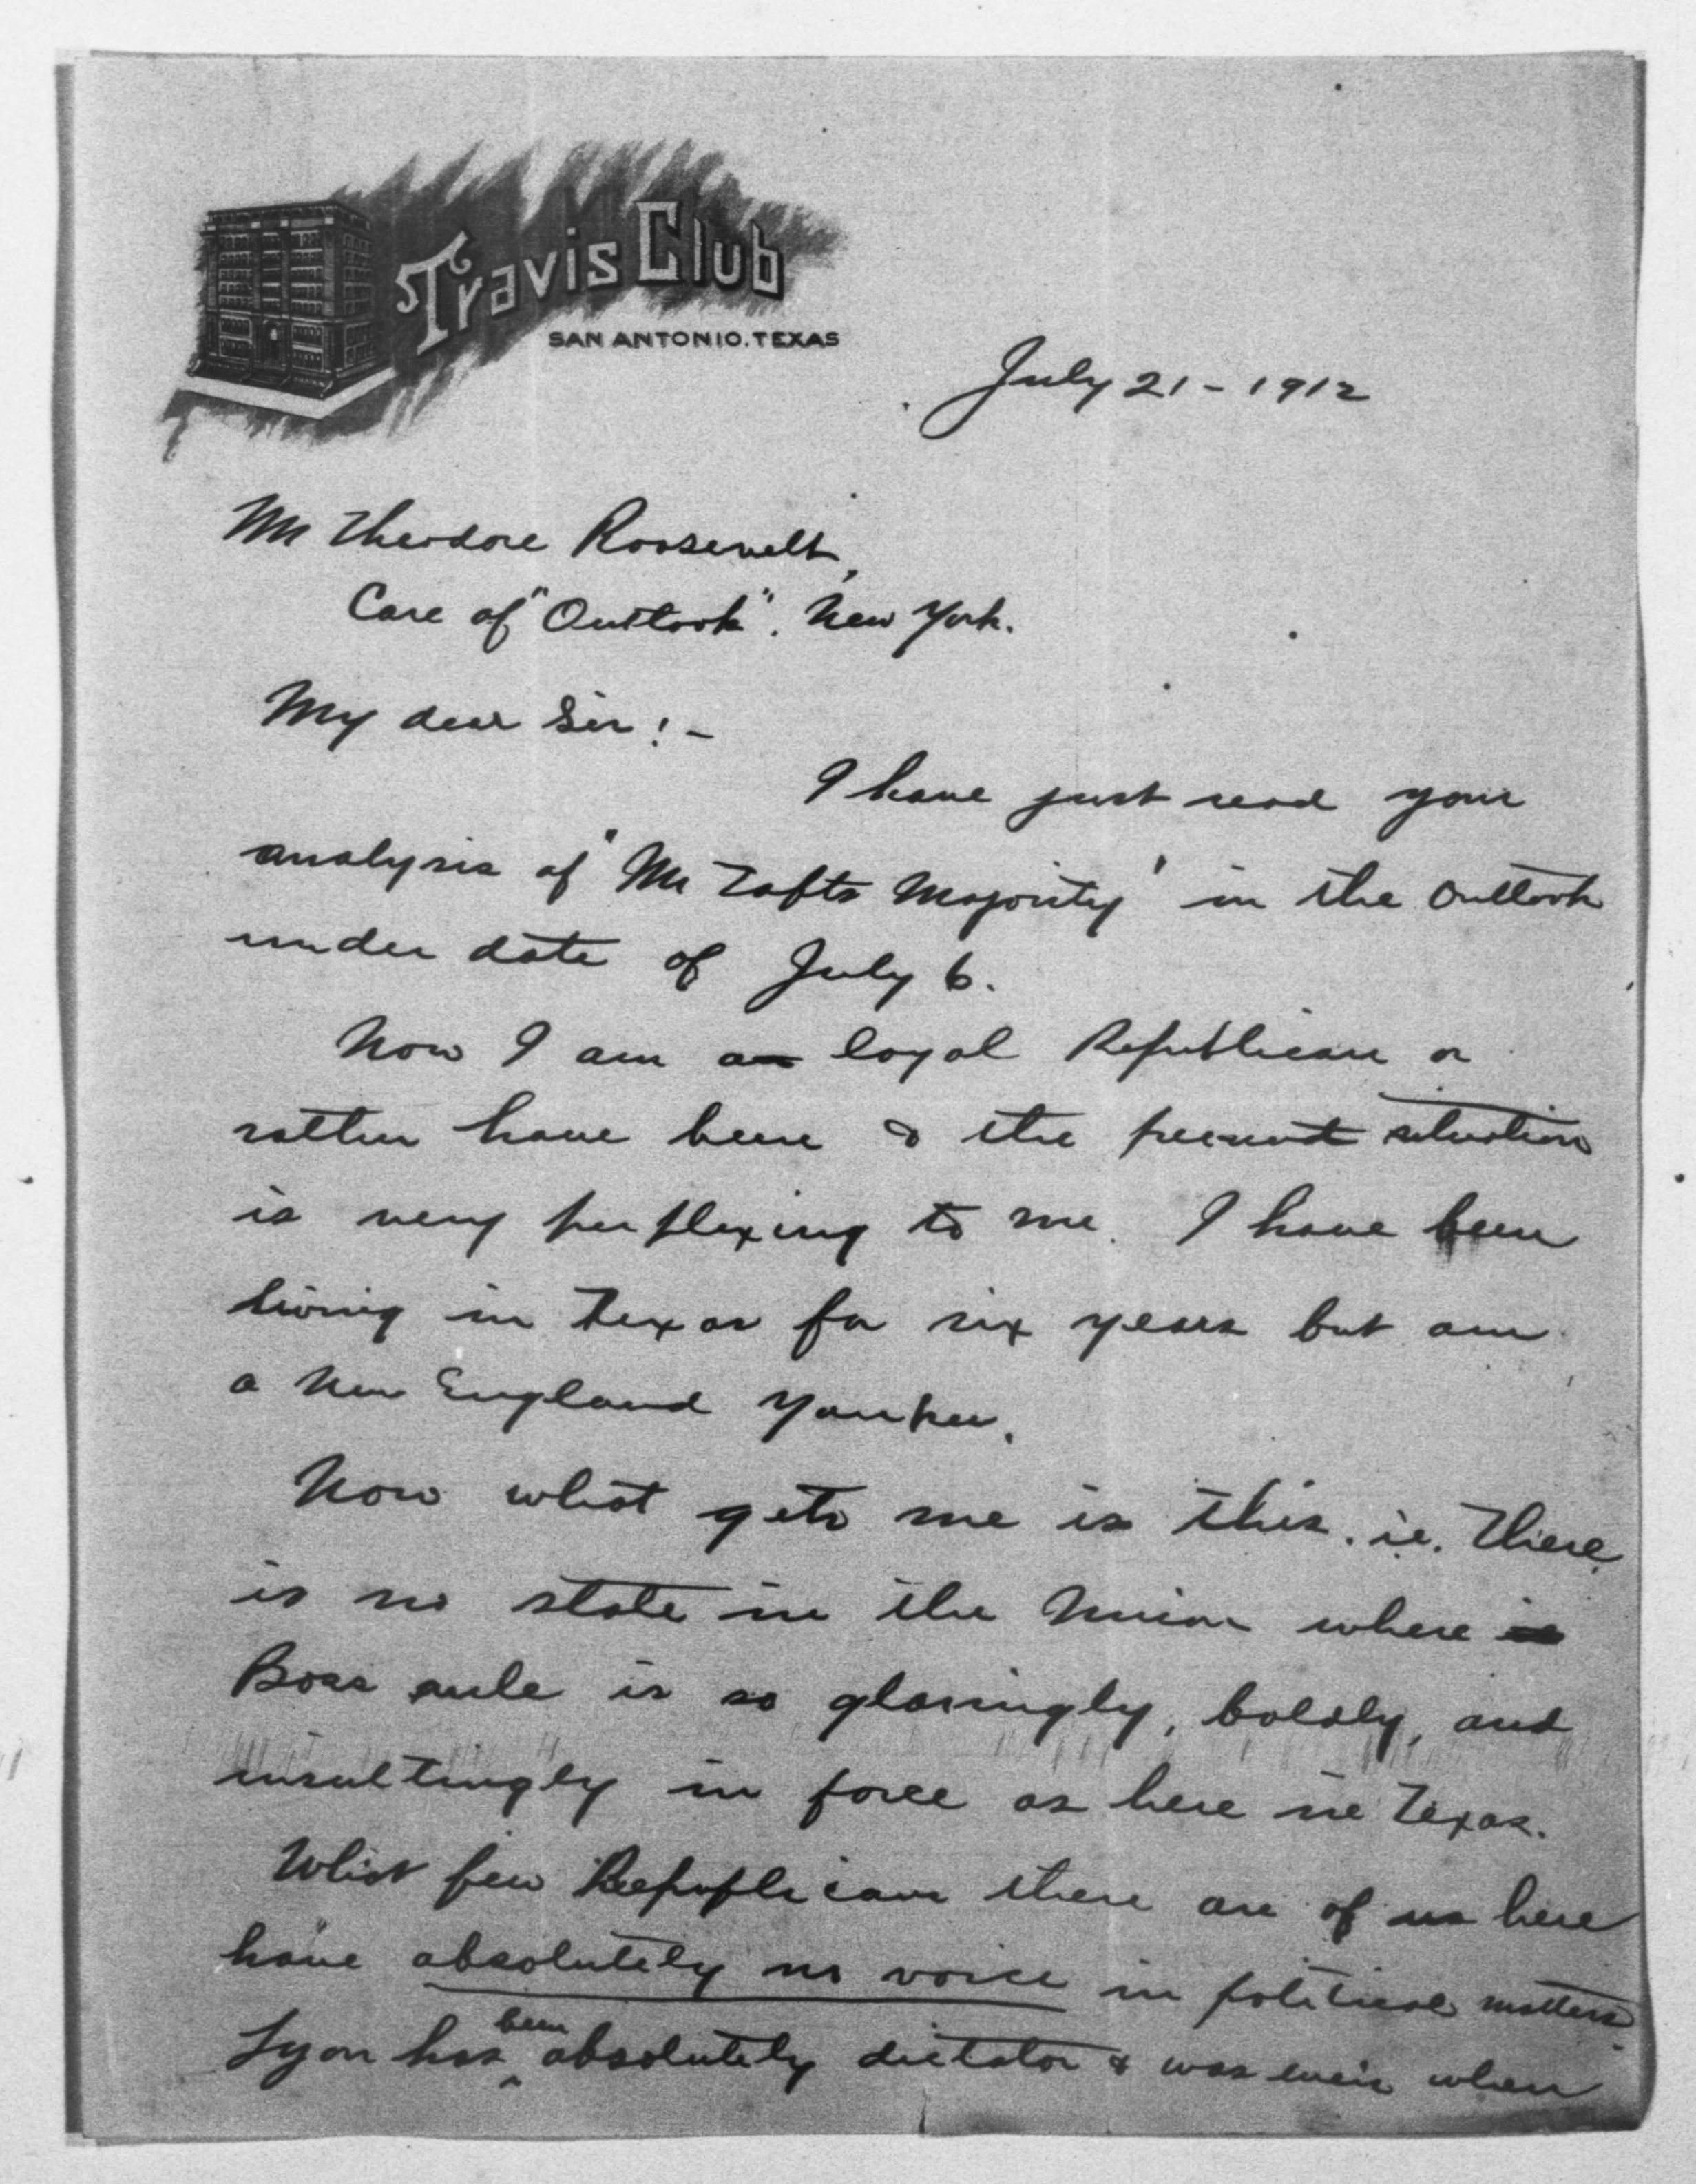 Travis Club
SAN ANTONIO, TEXAS
July 21 - 1912
Mr Theodore Roosevelt,
Care of "Outlook". New York.
My dear Sir! -
I have just read your
analysis of "Mr Tafts Majority" in the Outlook
under date of July 6.
Now I am a loyal Republican or
rather have been & the present situation
is very perplexing to me. I have been
living in Texas for six years but am
a New England Yankee.
Now what gets me is this. ie. There
is no state in the Union where
Boss rule is so glaringly, boldly, and
insultingly in force as here in Texas.
What few Republicans there are of us here
have absolutely no voice in political matters.
Lyon has been absolutely dictator & was even when